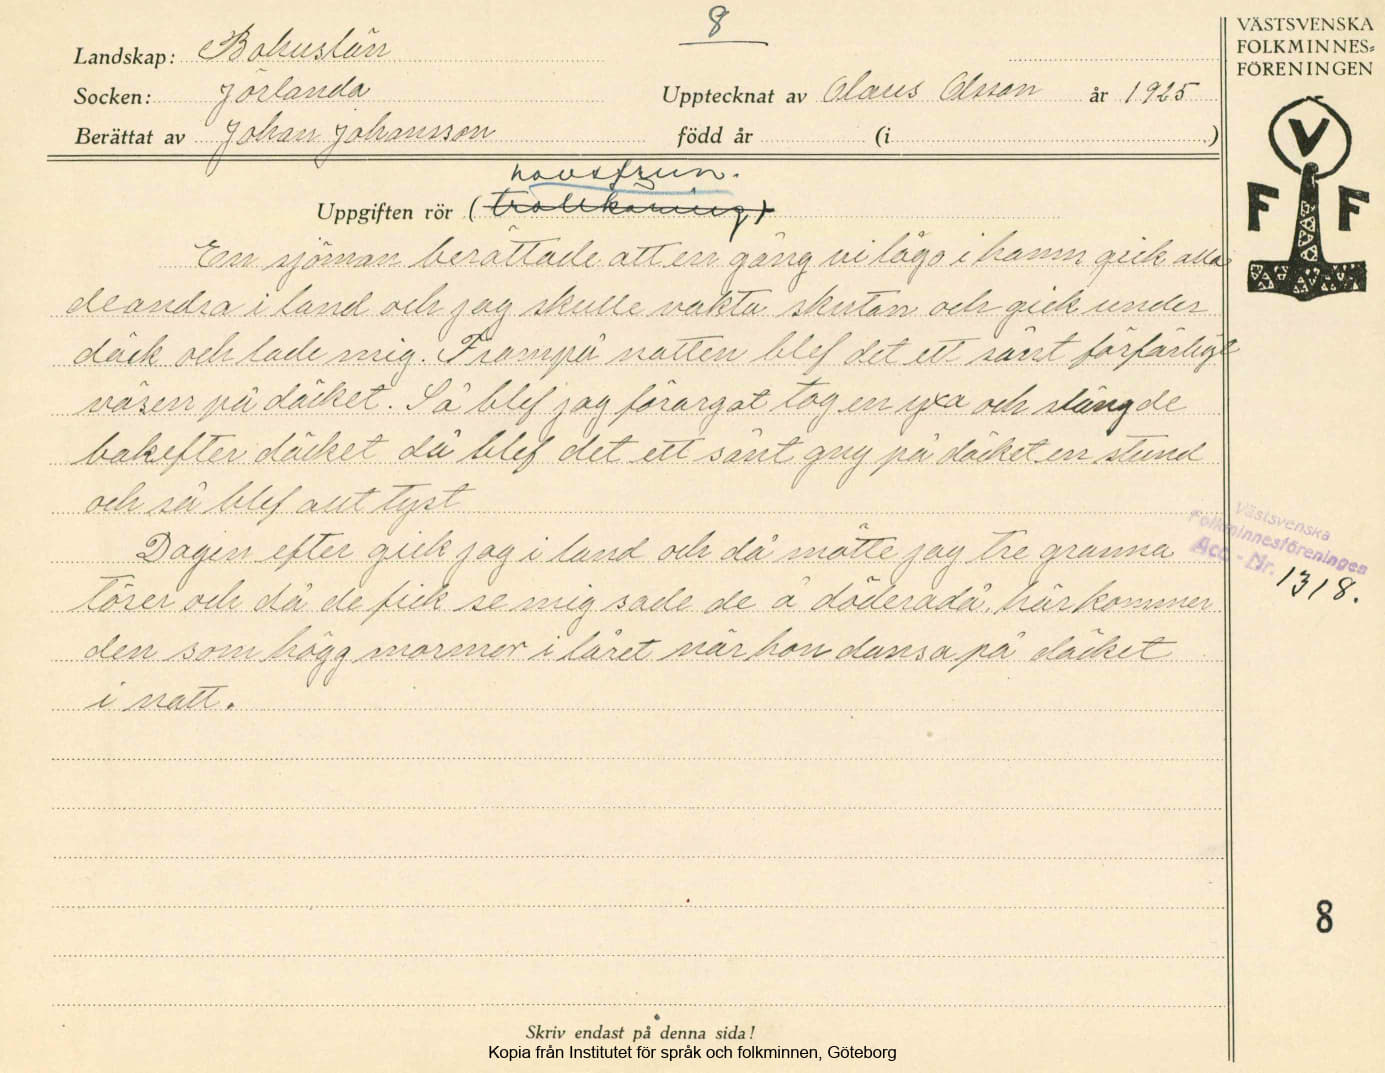 8
Landskap: Bohuslän
Socken: Jörlanda
Upptecknat av Olaus Olsson år 1925
Berättat av Johan Johansson född år (i )
havsfrun.
Uppgiften rör (trollkäring)
En sjöman berättade att en gång vi lågo i hamn gick alla
de andra i land och jag skulle vakta skutan och gick under
däck och lade mig. Frampå natten blef det ett sånt förfärligt
väsen på däcket. Så blef jag förargat tog en yxa och slängde
bakefter däcket då blef det ett sånt gny på däcket en stund
och så blef allt tyst
Dagen efter gick jag i land och då mötte jag tre granna
töser och då de fick se mig sade de å döderadå, här kommer
den som högg mormor i låret när hon dansa på däcket
i natt.
VÄSTSVENSKA
FOLKMINNES=
FÖRENINGEN
V
F F
Västsvenska
Folkminnesföreningen
Acc - Nr. 1318.
8
Skriv endast på denna sida!
Kopia från Institutet för språk och folkminnen, Göteborg